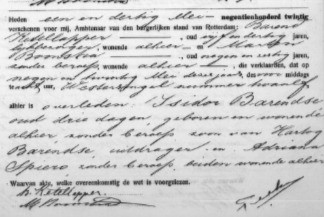 Heden een en dertig Mei negentienhonderd twintig
verschenen voor mij, Ambtenaar van den burgerlijken stand van Rotterdam: Barend
Ketellapper, oud vijf en dertig jaren,
wonende alhier en Marcus
Boonstra, oud negen en zestig jaren,
zonder beroep wonende alhier, die verklaarden, dat op
negen en twintig Mei dezes jaars des voor middags
uur, Westersingel nummer twaalf
alhier is overleden: Isidor Barendse
oud drie dagen, geboren en wonende
alhier zonder beroep zoon van Hartog
Barendse uitdrager en Adriana
Spiero zonder beroep, beiden wonende alhier
Waarvan akte, welke overeenkomstig de wet is voorgelezen.
B. Ketellapper